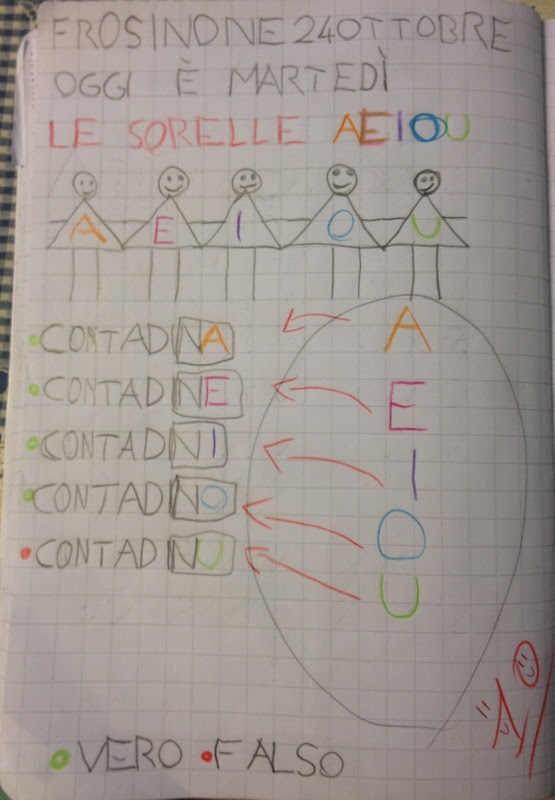 FROSINONE 24 OTTOBRE
OGGI È MARTEDÌ
LE SORELLE AEIOU
A E I O U
CONTADINA A
CONTADINE E
CONTADINI I
CONTADINO O
CONTADINU U
VERO FALSO